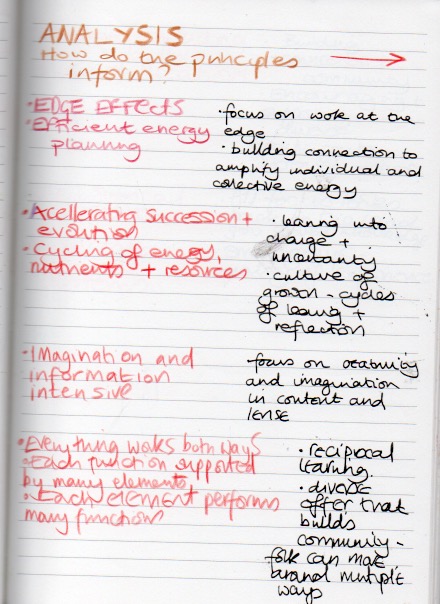 ANALYSIS
How do the principles
inform?
• EDGE EFFECTS
• Efficient energy
planning
• focus on work at the
edge
• building connection to
amplify individual and
collective energy
• Accellerating succession +
evolution
• Cycling of energy,
nutrients + resources
• leaning into
change +
uncertainty
• culture of
growth - cycles
of learning +
reflection
• Imagination and
information
intensive
focus on creativity
and imagination
in content and
lense
• Everything works both ways
• Each function supported
by many elements,
• Each element performs
many functions
• reciprocal
learning.
• diverse
offer that
builds
community -
folk can
around multiple
ways